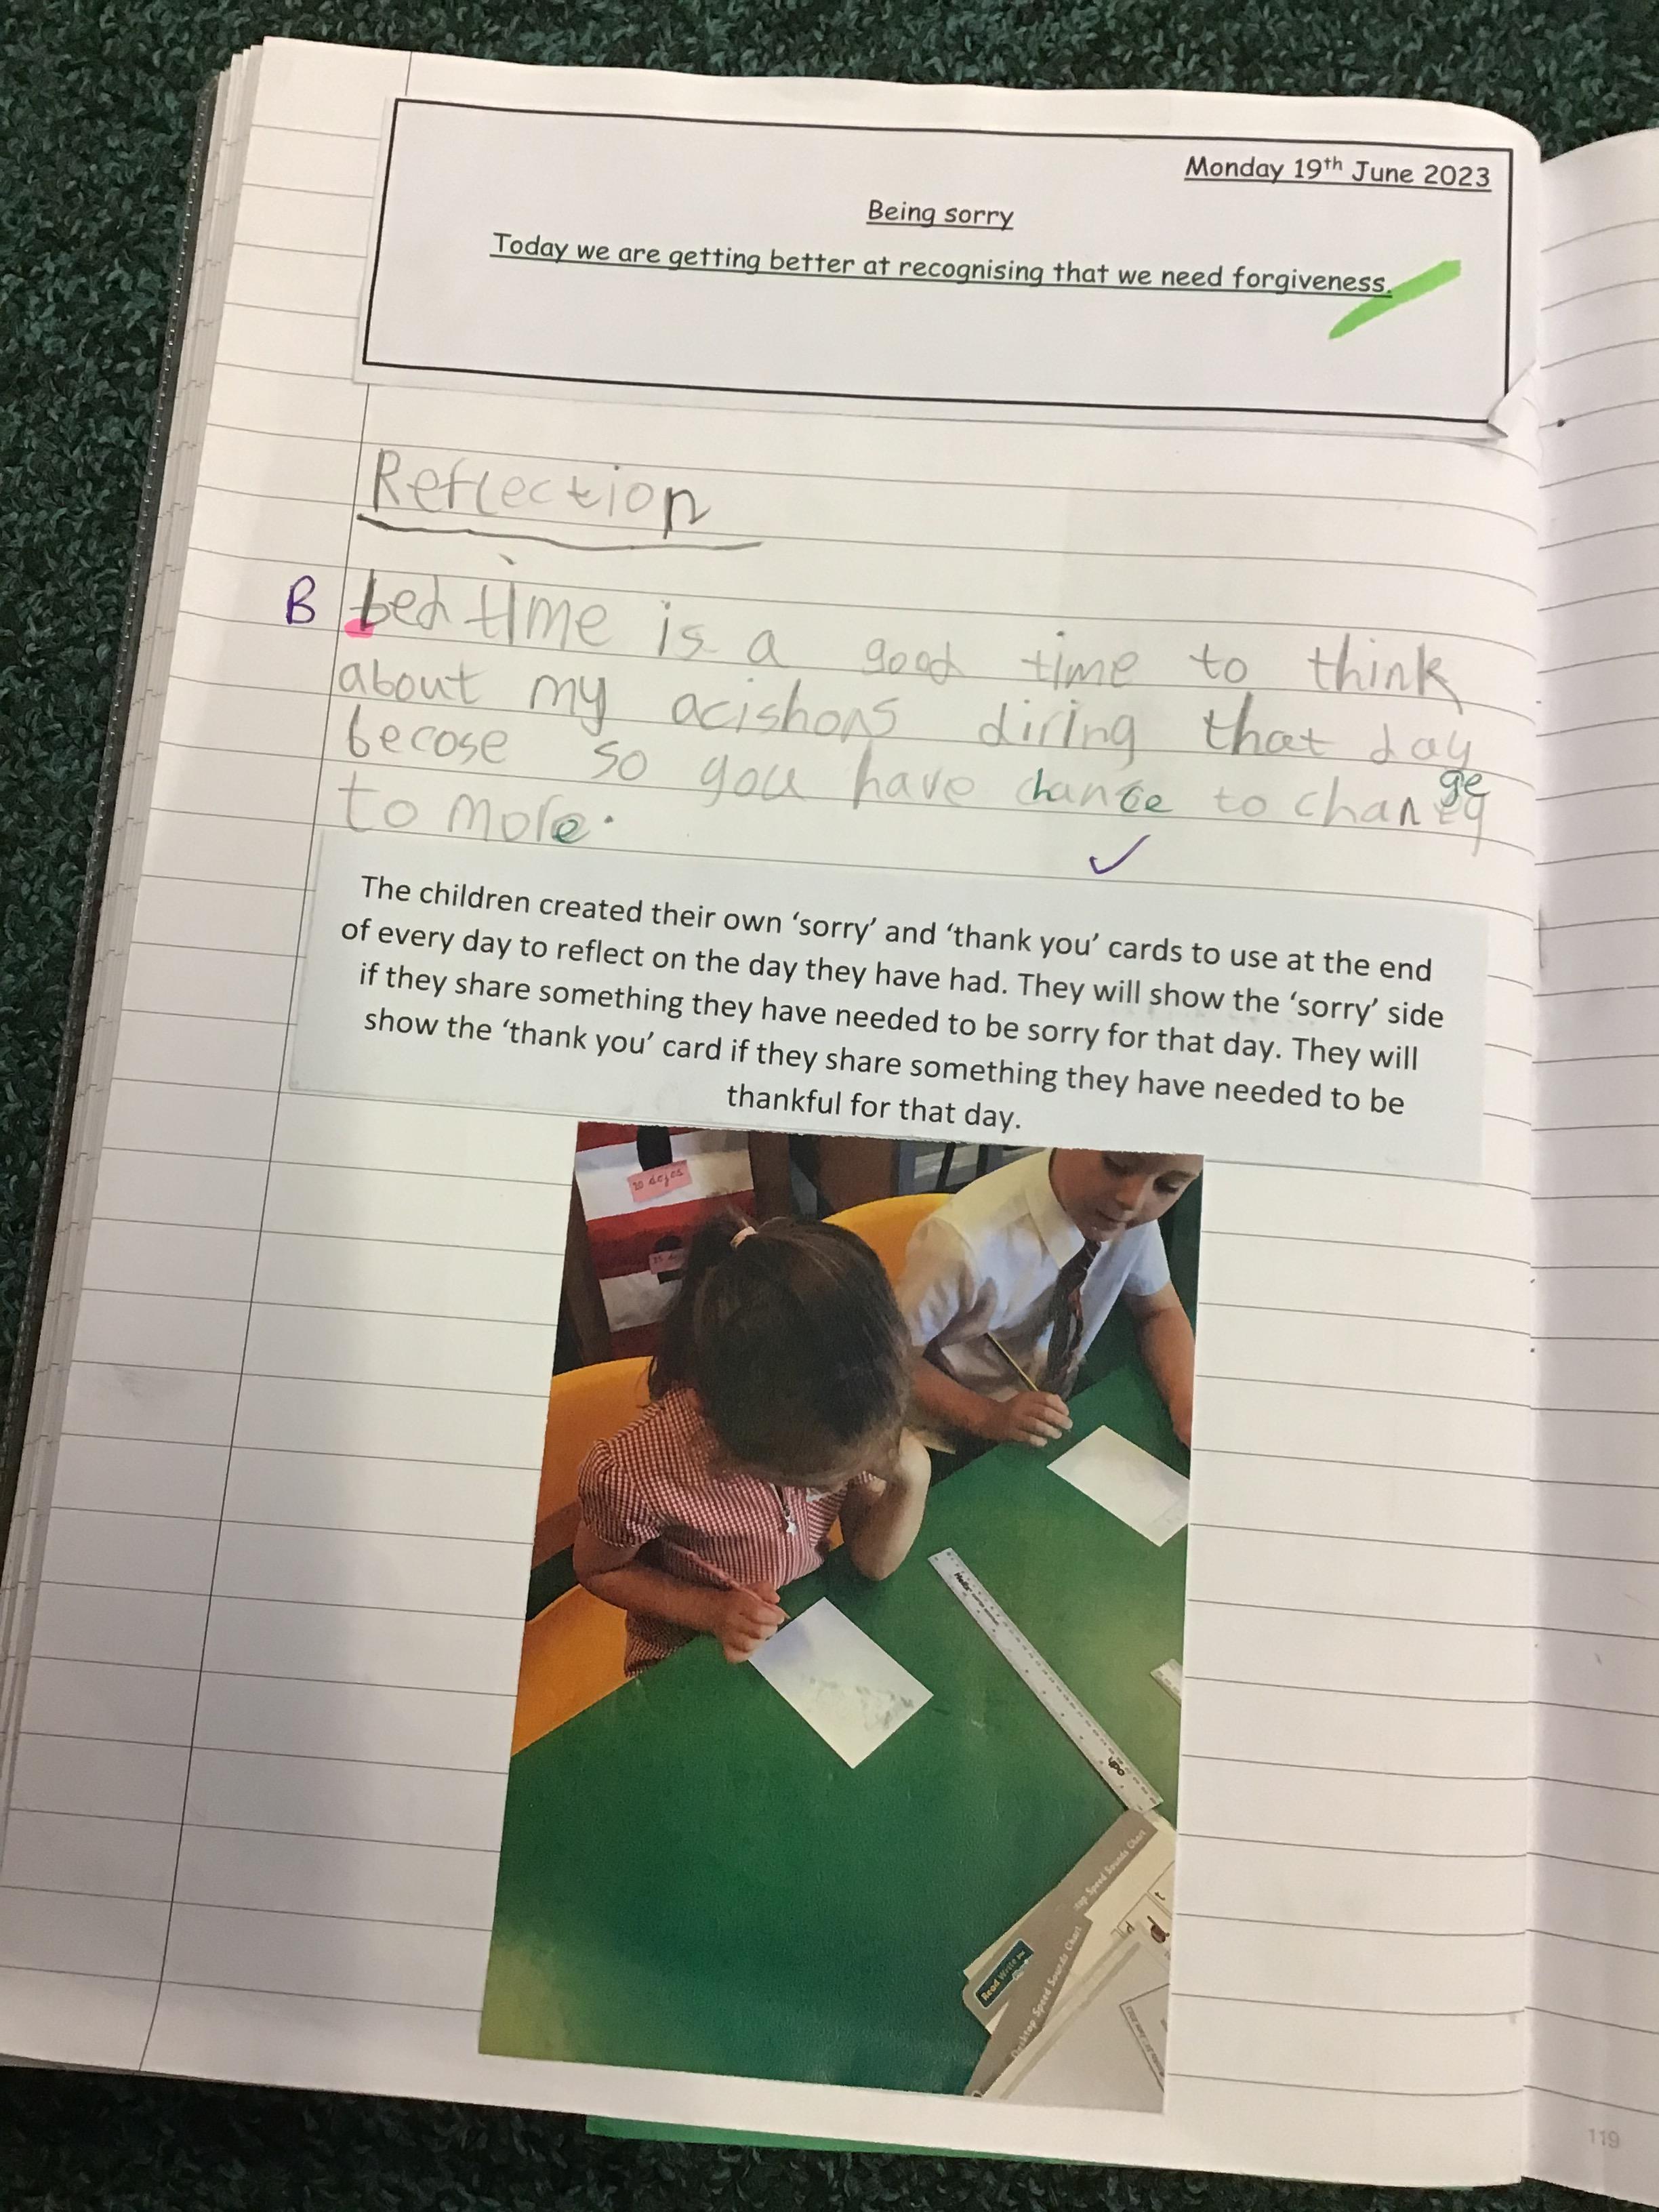 Monday 19th June 2023
Being sorry
Today we are getting better at recognising that we need forgiveness.
Reflection
B bedtime is a good time to think
about my acishons diring that day
becose so you have chance to change
to more.
The children created their own 'sorry' and 'thank you' cards to use at the end
of every day to reflect on the day they have had. They will show the 'sorry' side
if they share something they have needed to be sorry for that day. They will
show the 'thank you' card if they share something they have needed to be
thankful for that day.
20 dejes
Helix
Read Write Inc
Desktop Speed Sounds Chart
top Speed Sounds Chart
119